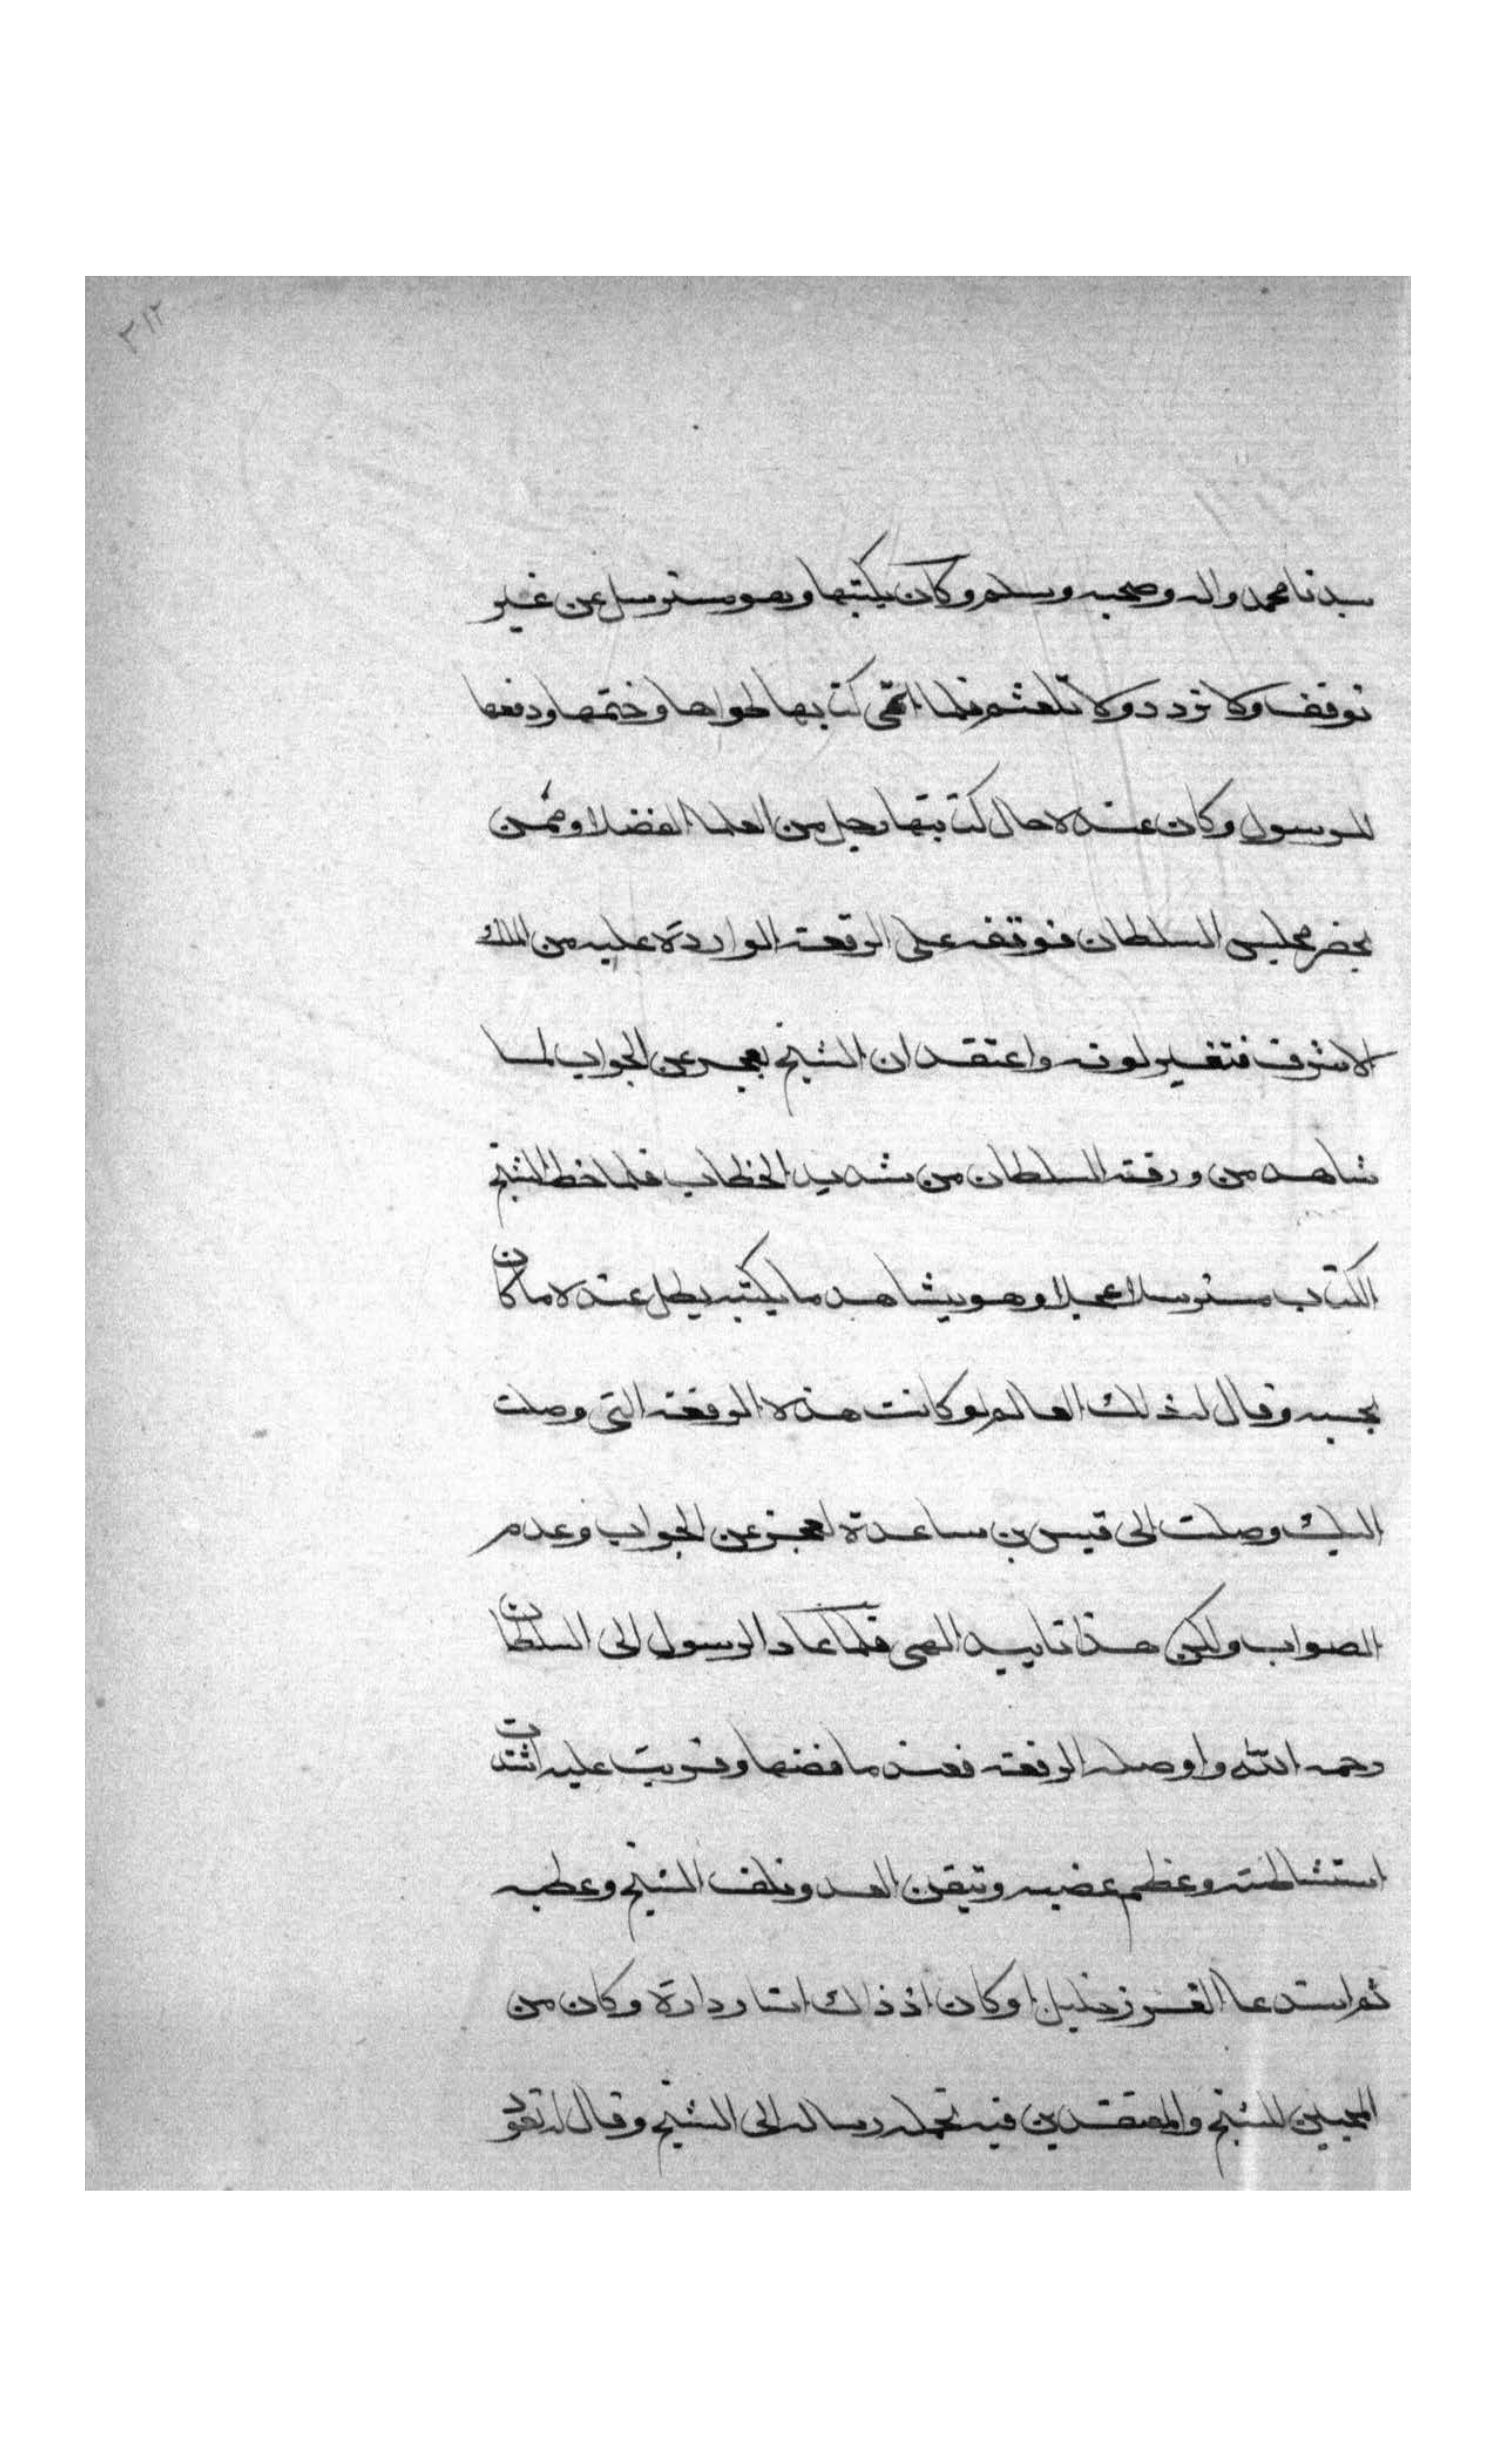 ٣١٢
سيدنا محمد واله وصحبه وسلم وكان يكتبها وهو مسترسل عن غير
توقف ولا تردد ولا تلعثم فلما انتهى كتابها طواها وختمها ودفعها
للرسول وكان عنده حال كتابتها رجل من العلما الفضلا وممن
يحضر مجلس السلطان فوقف على الرقعة الواردة عليه من الملك
الاشرف فتغير لونه واعتقد ان الشيخ يعجز عن الجواب لما
شاهد من ورقة السلطان من شديد الخطاب فلما خط الشيخ
الكتاب مسترسلا عجلا وهو يشاهد ما يكتبه بطل عنده ما كان
يحسبه وقال له ذلك العالم لو كانت هذه الرقعة التي وصلت
اليك وصلت الى قيس بن ساعدة لعجز عن الجواب وعدم
الصواب ولكن هذا تاييد الهي فلما عاد الرسول الى السلطان
رحمه الله واوصله الرقعة فعند ما فضها وقريت عليه اشتدت
استشاطته وعظم غضبه وتيقن العدو تلف الشيخ وعطبه
ثم استدعا الغرز خليلا وكان اذ ذاك استاد داره وكان من
المحبين للشيخ والمعتقدين فيه فحمله رسالة الى الشيخ وقال له تعود